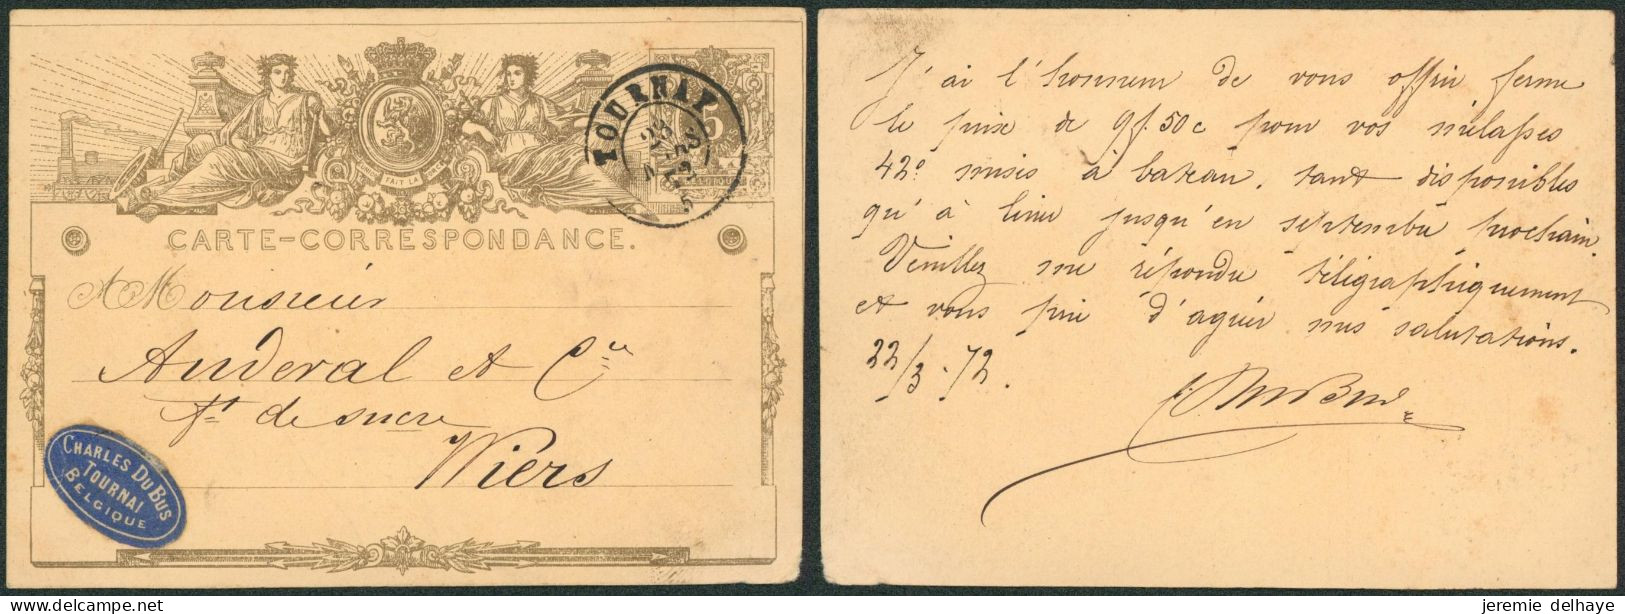 TOURNAY
5
CARTE-CORRESPONDANCE.
A Monsieur
Auderal et Cie
ft de sucre
Wiers
CHARLES DU BUS
TOURNAI
BELGIQUE
J'ai l'honneur de vous offrir ferme
le prix de 9f.50c pour vos mélasses
42° mises à bateau, tant disponibles
qu'à livrer jusqu'en septembre prochain.
Veuillez me répondre télégraphiquement
et vous prie d'agréer mes salutations.
22/3.72.
DuBus
www.delcampe.net
jeremie delhaye